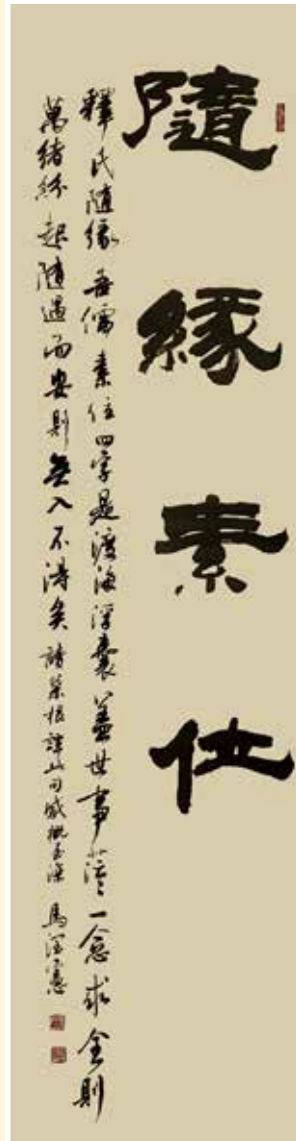 隨緣素位
釋氏隨緣吾儒素位四字是渡海浮囊蓋世事茫茫一念求全則
萬緒紛起隨遇而安則無入不得矣 讀菜根譚此句感概至深 馬